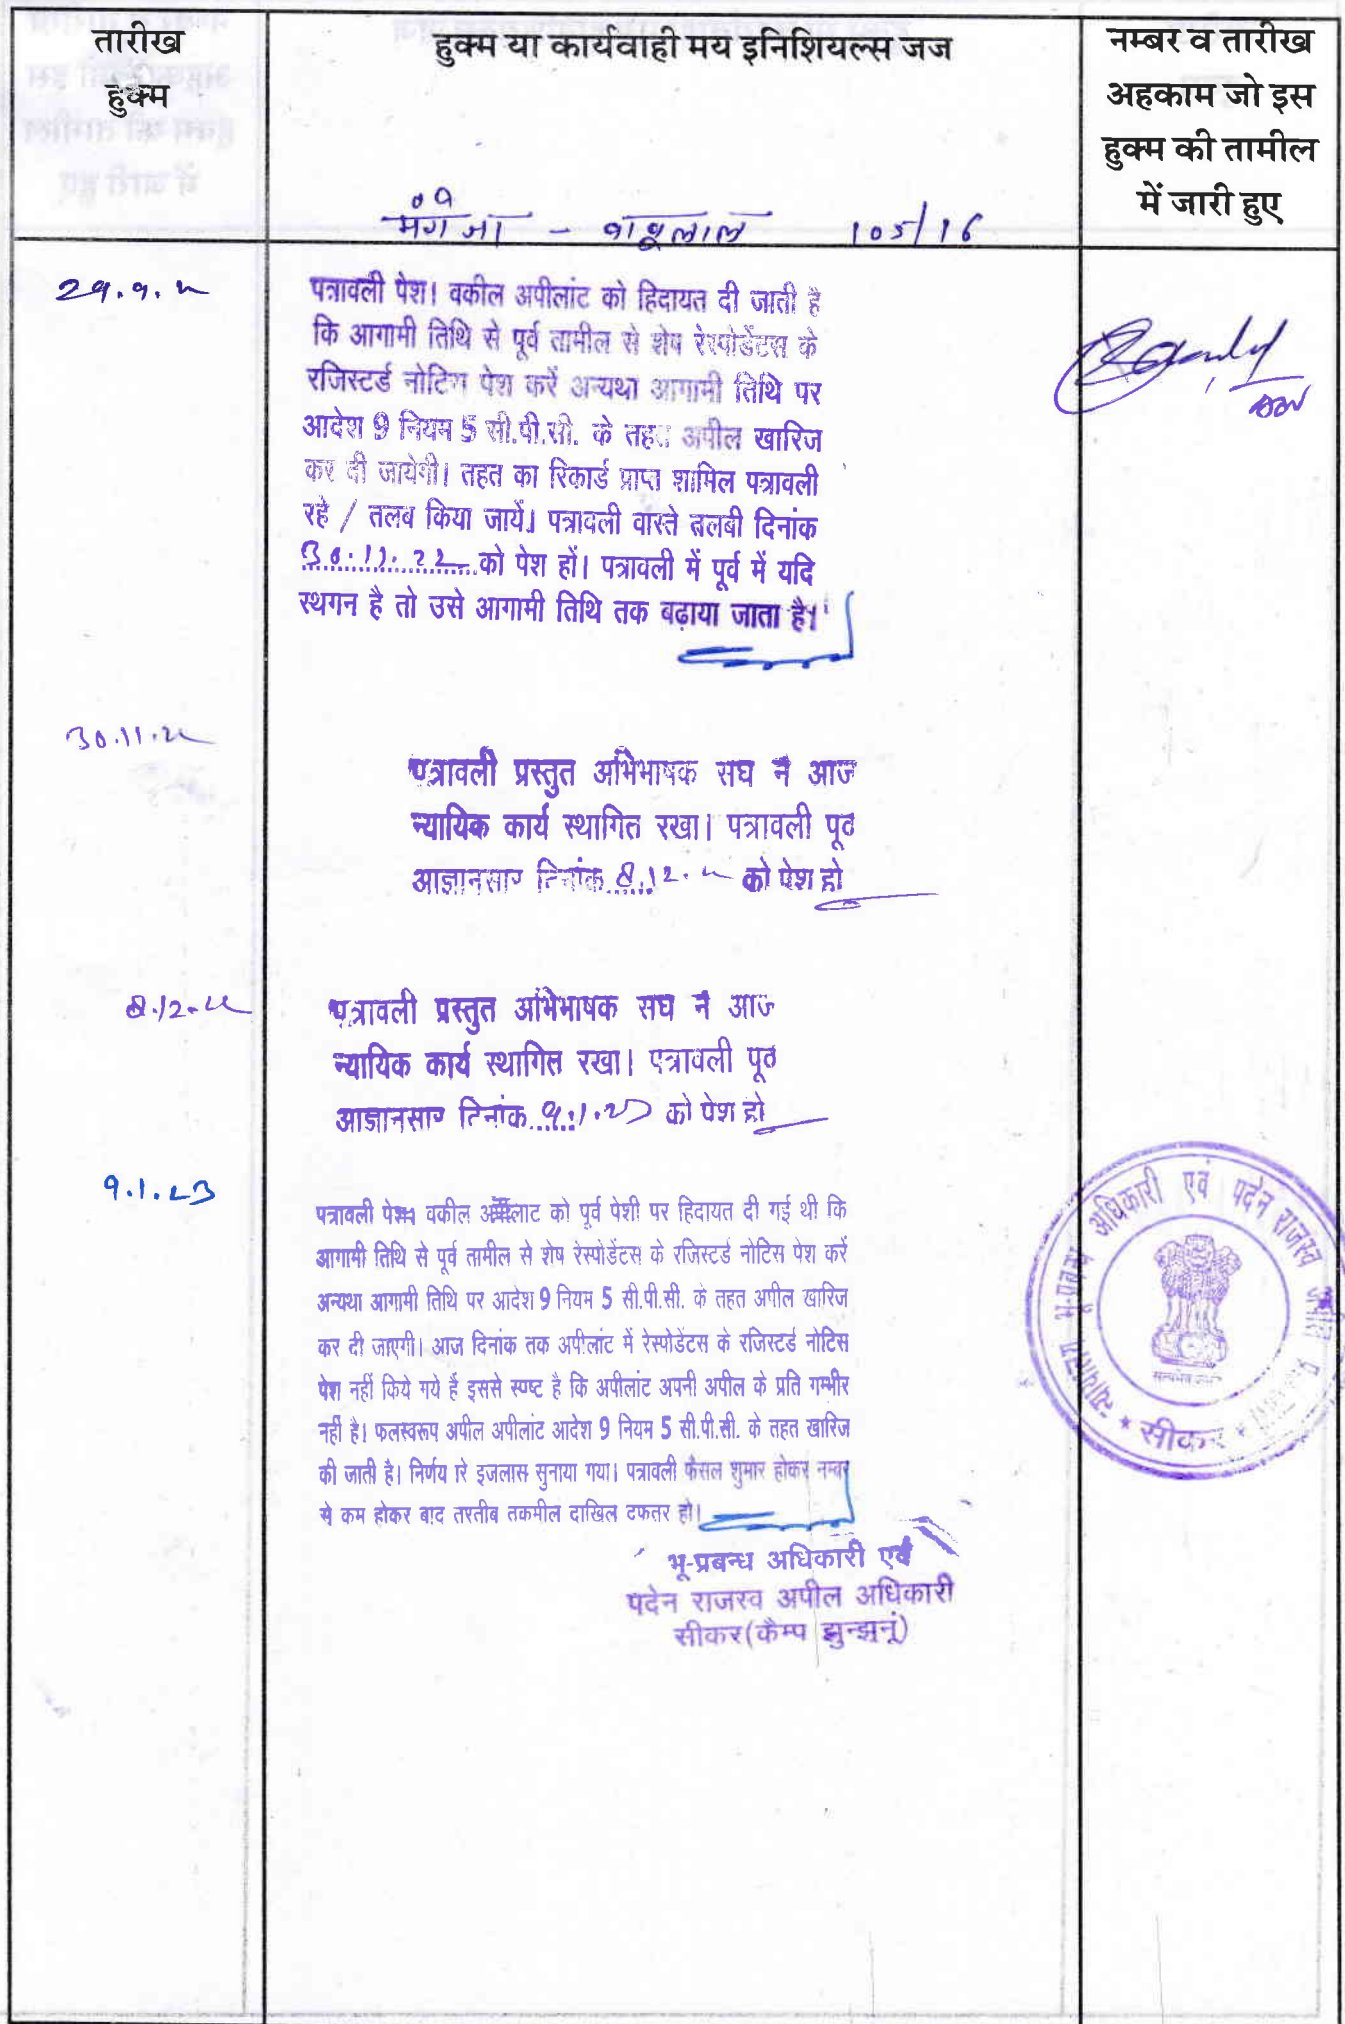 तारीख
हुक्म
हुक्म या कार्यवाही मय इनिशियल्स जज
नम्बर व तारीख
अहकाम जो इस
हुक्म की तामील
में जारी हुए
105/16
29.9.22
पत्रावली पेश। वकील अपीलांट को हिदायत दी जाती है
कि आगामी तिथि से पूर्व तामील से शेष रेस्पोडेंटस के
रजिस्टर्ड नोटिस पेश करें अन्यथा आगामी तिथि पर
आदेश 9 नियम 5 सी.पी.सी. के तहत अपील खारिज
कर दी जायेगी। तहत का रिकार्ड प्राप्त शामिल पत्रावली
रहे / तलब किया जायें। पत्रावली वास्ते तलबी दिनांक
30.11.22 को पेश हों। पत्रावली में पूर्व में यदि
स्थगन है तो उसे आगामी तिथि तक बढ़ाया जाता है।
30.11.22
पत्रावली प्रस्तुत अभिभाषक सघ ने आज
न्यायिक कार्य स्थागित रखा। पत्रावली पूर्व
आज्ञानसार दिनांक 8.12.22 को पेश हो
8.12.22
पत्रावली प्रस्तुत अभिभाषक सघ ने आज
न्यायिक कार्य स्थागित रखा। पत्रावली पूर्व
आज्ञानसार दिनांक 9.1.23 को पेश हो
9.1.23
पत्रावली पेश। वकील अपीलाट को पूर्व पेशी पर हिदायत दी गई थी कि
आगामी तिथि से पूर्व तामील से शेष रेस्पोडेंटस के रजिस्टर्ड नोटिस पेश करें
अन्यथा आगामी तिथि पर आदेश 9 नियम 5 सी.पी.सी. के तहत अपील खारिज
कर दी जाएगी। आज दिनांक तक अपीलांट में रेस्पोडेंटस के रजिस्टर्ड नोटिस
पेश नहीं किये गये है इससे स्पष्ट है कि अपीलांट अपनी अपील के प्रति गम्भीर
नहीं है। फलस्वरूप अपील अपीलांट आदेश 9 नियम 5 सी.पी.सी. के तहत खारिज
की जाती है। निर्णय सरे इजलास सुनाया गया। पत्रावली फैसल शुमार होकर नम्बर
से कम होकर बाद तरतीब तकमील दाखिल दफतर हो।
भू-प्रबन्ध अधिकारी एवं
पदेन राजस्व अपील अधिकारी
सीकर(कैम्प झुन्झनूं)
भू-प्रबन्ध अधिकारी एवं पदेन राजस्व
सीकर